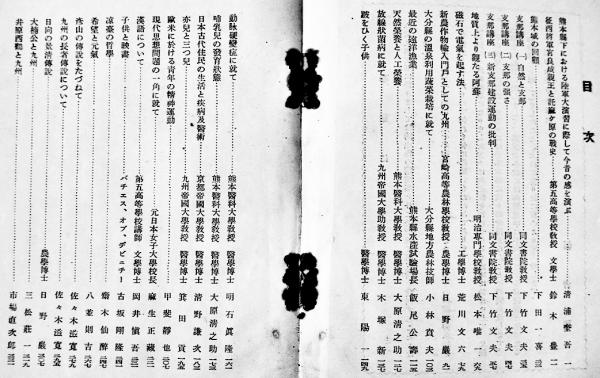 目次
熊本縣下における陸軍大演習に際して今昔の感を演ぶ 清浦奎吾 一
征西將軍宮良成親王と託麻ケ原の戰史 第五高等學校教授 文學士 鈴木登 二
熊本城の回顧 下田一喜 三
支那講座（一）自然と支那 同文書院教授 下竹文夫
支那講座（二）支那の强さ 同文書院教授 下竹文夫
支那講座（三）新支那建設運動の批判 同文書院教授 下竹文夫
地質上より觀たる阿蘇 明治專門學校教授 松本唯一
磁石で電氣を起す法 工學博士 荒川文六
新農作物輸入門戶としての九州 宮崎高等農林學校教授 農學博士 日野巖
大分縣の溫泉利用蔬菜栽培に就て 大分縣地方農林技師 小林貢夫
最近の遠洋漁業 熊本縣水產試驗場長 飯尾公壽
天然榮養と人工榮養 熊本醫科大學教授 醫學博士 大原淸之助
放線狀菌病に就て 九州帝國大學助教授 醫學博士 木塚新
跛をひく子供 醫學博士 東陽一
動脉硬變症に就て 熊本醫科大學教授 醫學博士 明石眞隆
哺乳兒の發育狀態 熊本醫科大學教授 醫學博士 大原淸之助
日本古代住民の生活と疾病及醫術 京都帝國大學教授 醫學博士 淸野謙次
赤兒と三つ兒 九州帝國大學教授 醫學博士 箕田貢
歐米に於ける靑年の精神運動 甲斐靜也
現代思想問題の一角に就て 元日本女子大學校長 麻生正藏
漢語について 第五高等學校講師 文學博士 岡井愼吾
子供と映畫 バチエス・オブ・デビュチー 古坂剛隆
凉臺の哲學 齋木仙醉
希望と元氣 八並則吉
彥山の傳說をたづねて 佐々木滋寬
九州の長者傳說について 佐々木滋寬
日向の景淸傳說 農學博士 日野巖
大楠公と九州 三松莊一
井原西鶴と九州 市場直次郎